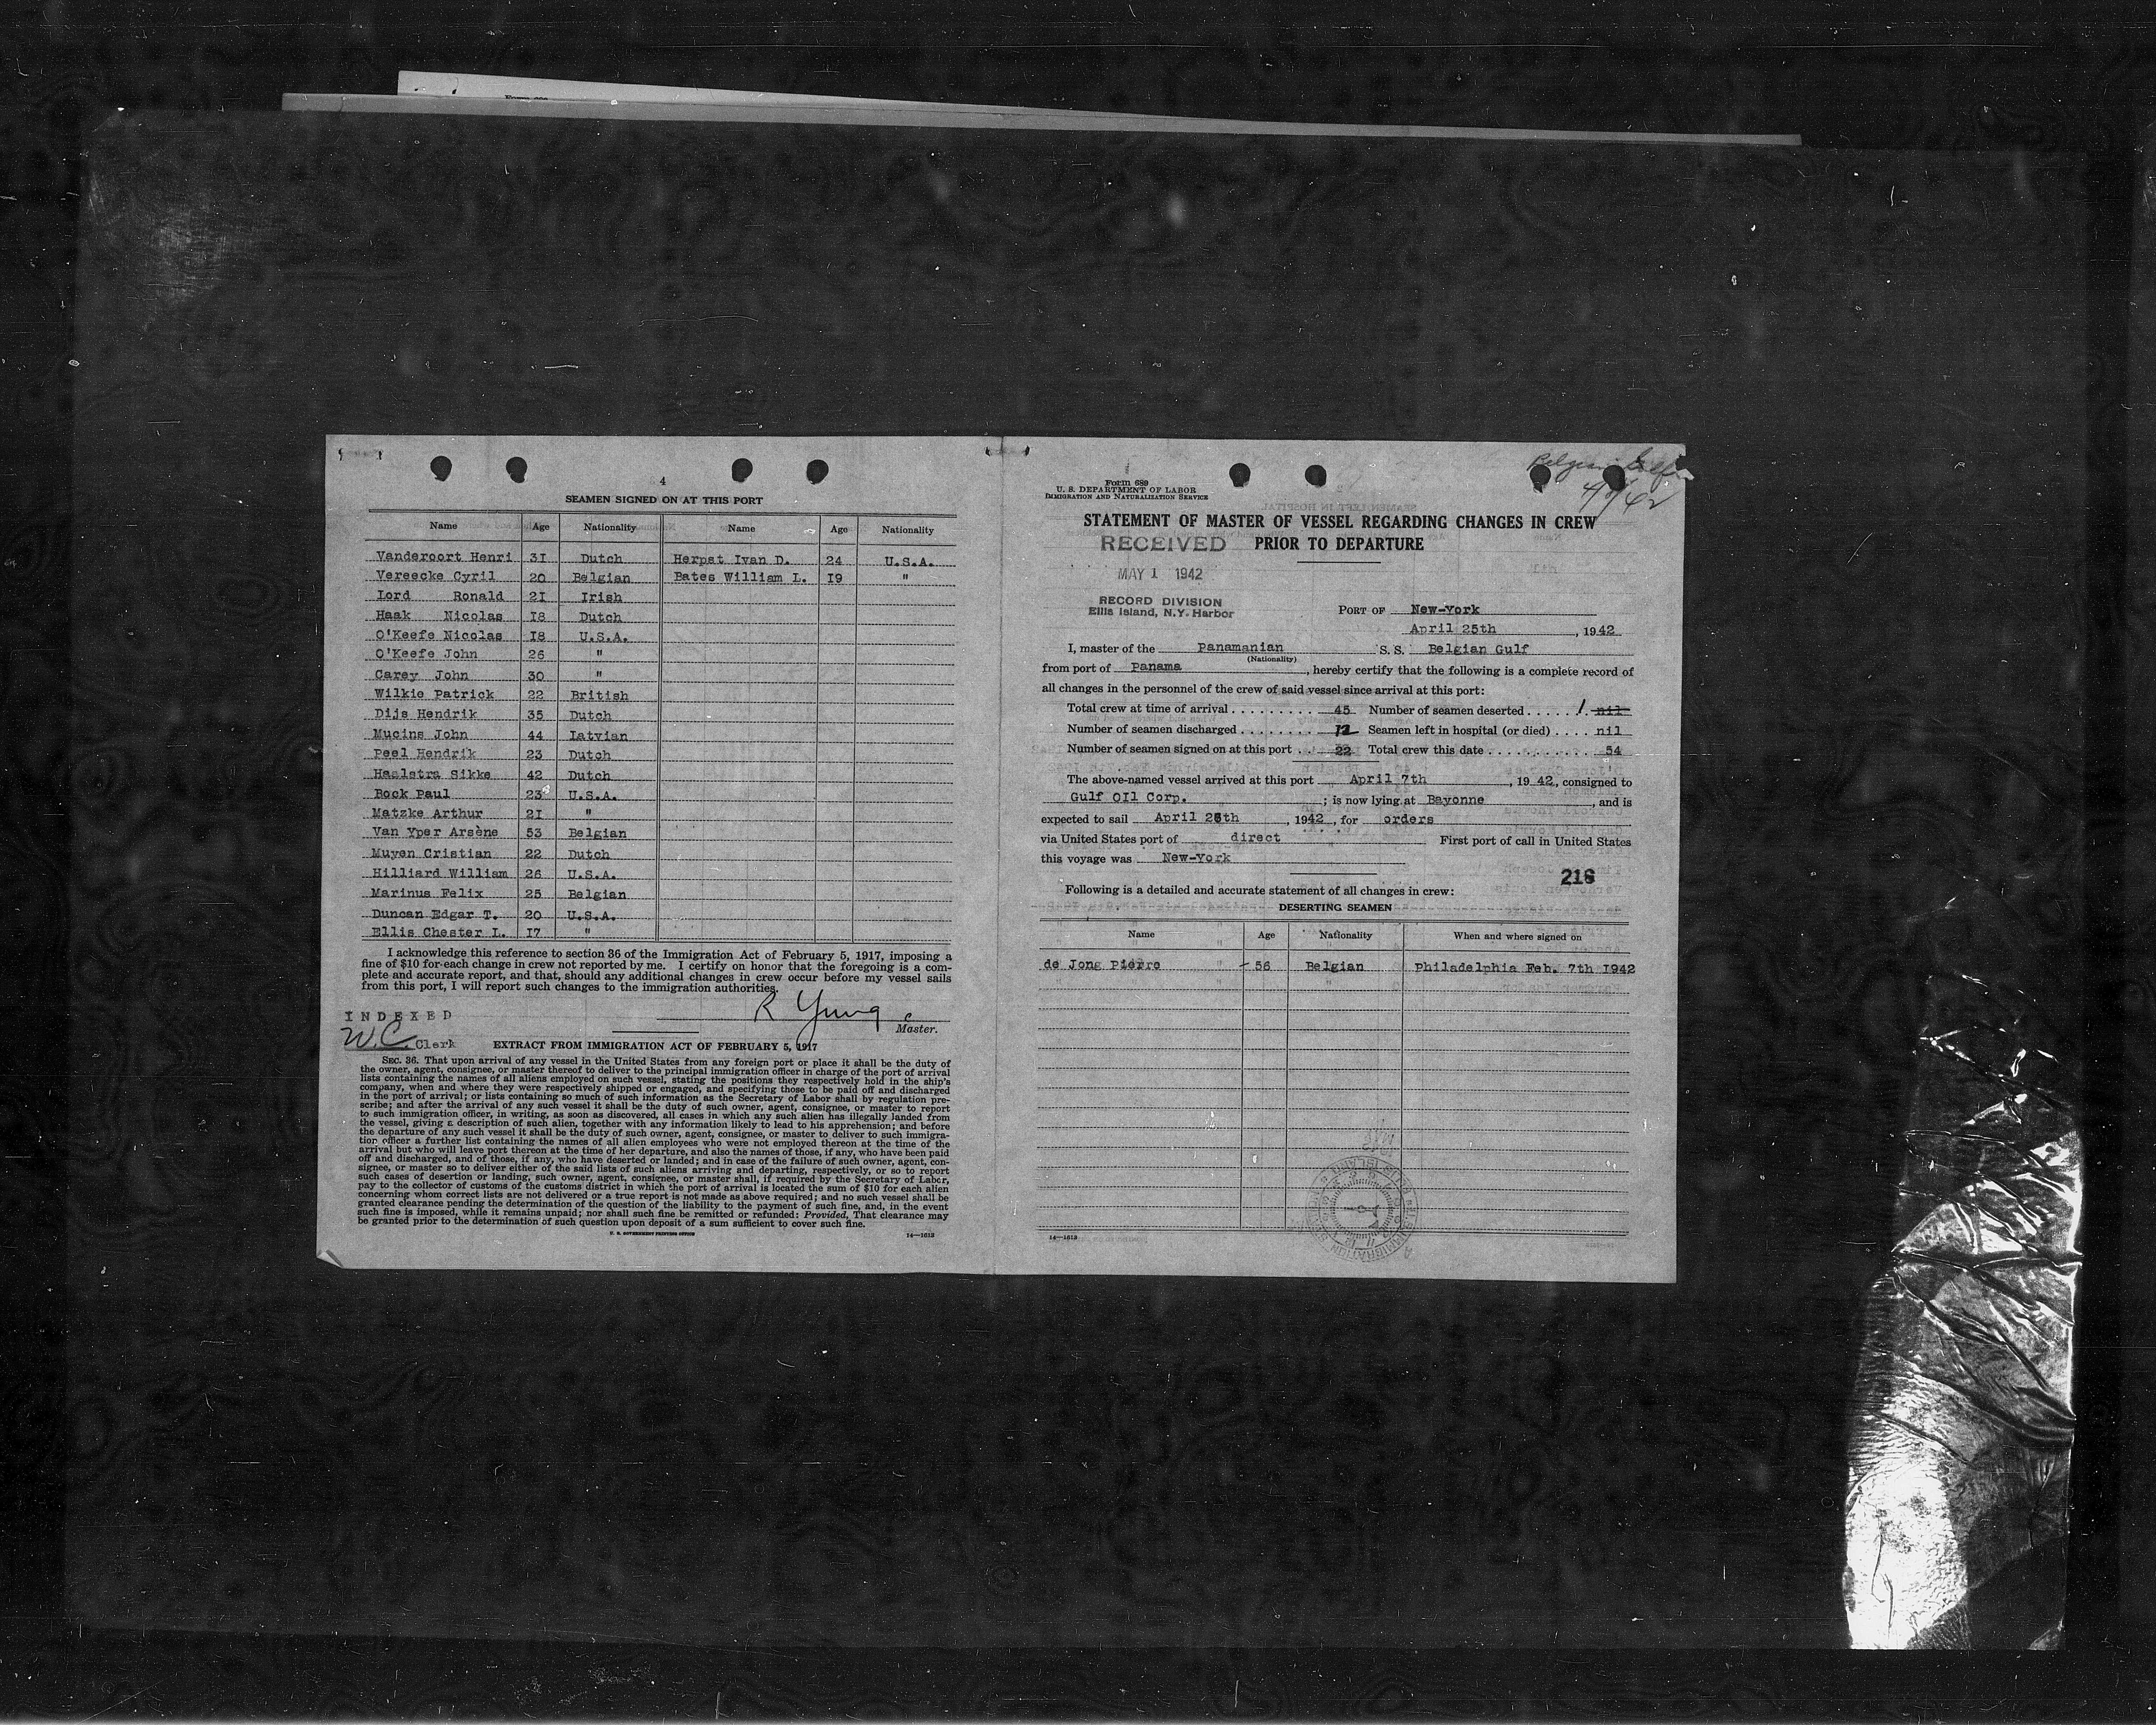 4
SEAMEN SIGNED ON AT THIS PORT
Name Age Nationality Name Age Nationality
Vanderoort Henri 31 Dutch Herpst Ivan D. 24 U.S.A.
Vereecke Cyril 20 Belgian Bates William L. 19 "
Lord Ronald 21 Irish
Haak Nicolas 18 Dutch
O'Keefe Nicolas 18 U.S.A.
O'Keefe John 26 "
Carey John 30 "
Wilkie Patrick 22 British
Dijs Hendrik 35 Dutch
Mucins John 44 Latvian
Peel Hendrik 23 Dutch
Haalstra Sikke 42 Dutch
Bock Paul 23 U.S.A.
Matzke Arthur 21 "
Van Yper Arsène 53 Belgian
Muyen Cristian 22 Dutch
Hilliard William 26 U.S.A.
Marinus Felix 25 Belgian
Duncan Edgar T. 20 U.S.A.
Ellis Chester L. 17 "
I acknowledge this reference to section 36 of the Immigration Act of February 5, 1917, imposing a
fine of $10 for each change in crew not reported by me. I certify on honor that the foregoing is a com-
plete and accurate report, and that, should any additional changes in crew occur before my vessel sails
from this port, I will report such changes to the immigration authorities.
R Yung
Master.
INDEXED
W.C. Clerk
EXTRACT FROM IMMIGRATION ACT OF FEBRUARY 5, 1917
SEC. 36. That upon arrival of any vessel in the United States from any foreign port or place it shall be the duty of
the owner, agent, consignee, or master thereof to deliver to the principal immigration officer in charge of the port of arrival
lists containing the names of all aliens employed on such vessel, stating the positions they respectively hold in the ship's
company, when and where they were respectively shipped or engaged, and specifying those to be paid off and discharged
in the port of arrival; or lists containing so much of such information as the Secretary of Labor shall by regulation pre-
scribe; and after the arrival of any such vessel it shall be the duty of such owner, agent, consignee, or master to report
to such immigration officer, in writing, as soon as discovered, all cases in which any such alien has illegally landed from
the vessel, giving a description of such alien, together with any information likely to lead to his apprehension; and before
the departure of any such vessel it shall be the duty of such owner, agent, consignee, or master to deliver to such immigra-
tion officer a further list containing the names of all alien employees who were not employed thereon at the time of the
arrival but who will leave port thereon at the time of her departure, and also the names of those, if any, who have been paid
off and discharged, and of those, if any, who have deserted or landed; and in case of the failure of such owner, agent, con-
signee, or master so to deliver either of the said lists of such aliens arriving and departing, respectively, or so to report
such cases of desertion or landing, such owner, agent, consignee, or master shall, if required by the Secretary of Labor,
pay to the collector of customs of the customs district in which the port of arrival is located the sum of $10 for each alien
concerning whom correct lists are not delivered or a true report is not made as above required; and no such vessel shall be
granted clearance pending the determination of the question of the liability to the payment of such fine, and, in the event
such fine is imposed, while it remains unpaid; nor shall such fine be remitted or refunded: Provided, That clearance may
be granted prior to the determination of such question upon deposit of a sum sufficient to cover such fine.
U. S. GOVERNMENT PRINTING OFFICE 14—1613
Belgian Gulf
Form 689
U. S. DEPARTMENT OF LABOR
IMMIGRATION AND NATURALIZATION SERVICE
STATEMENT OF MASTER OF VESSEL REGARDING CHANGES IN CREW
PRIOR TO DEPARTURE
RECEIVED
MAY 1 1942
RECORD DIVISION
Ellis Island, N.Y. Harbor
PORT OF New-York
April 25th, 1942
I, master of the Panamanian S. S. Belgian Gulf
(Nationality)
from port of Panama, hereby certify that the following is a complete record of
all changes in the personnel of the crew of said vessel since arrival at this port:
Total crew at time of arrival 45 Number of seamen deserted 1 nil
Number of seamen discharged 12 Seamen left in hospital (or died) nil
Number of seamen signed on at this port 22 Total crew this date 54
The above-named vessel arrived at this port April 7th, 1942, consigned to
Gulf OIl Corp.; is now lying at Bayonne, and is
expected to sail April 26th, 1942, for orders
via United States port of direct First port of call in United States
this voyage was New-York
216
Following is a detailed and accurate statement of all changes in crew:
DESERTING SEAMEN
Name Age Nationality When and where signed on
de Jong Pierre 56 Belgian Philadelphia Feb. 7th 1942
14—1613